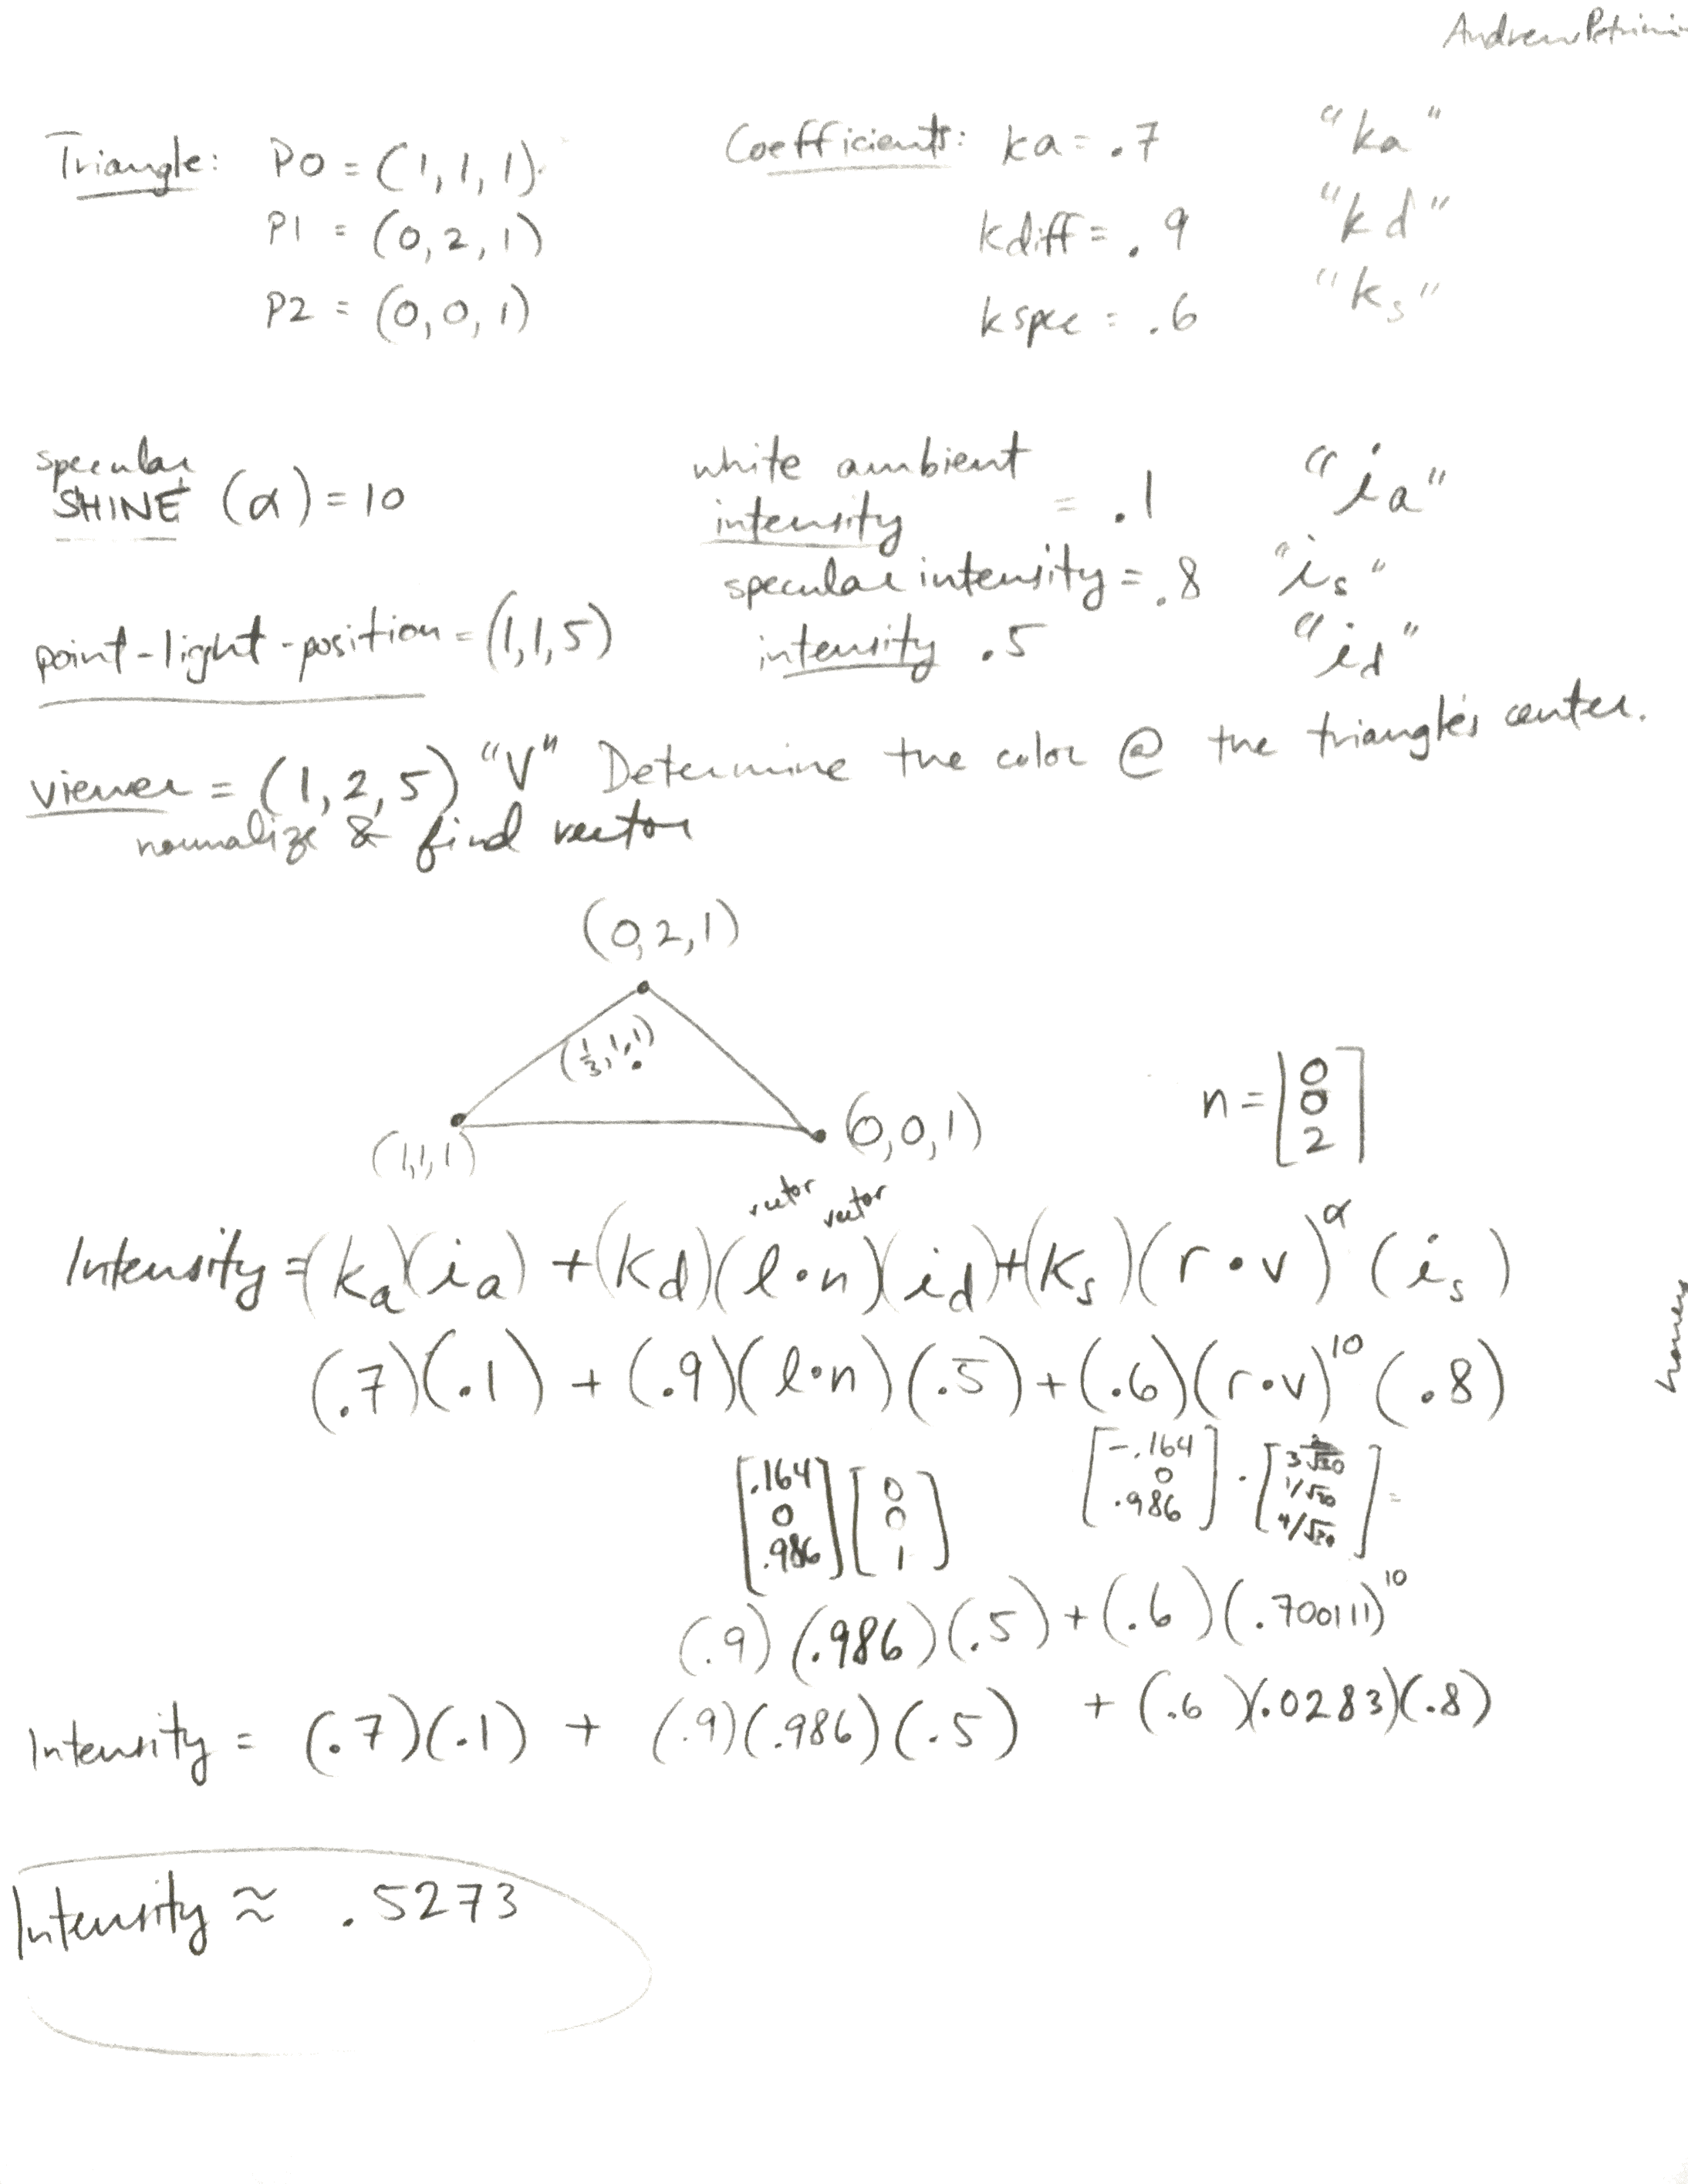 Andrew Petrini
Triangle: P0 = (1, 1, 1)
P1 = (0, 2, 1)
P2 = (0, 0, 1)
Coefficients: ka = .7 "ka"
kdiff = .9 "kd"
kspec = .6 "ks"
specular
SHINE (α) = 10
white ambient
intensity = .1 "ia"
specular intensity = .8 "is"
point-light-position = (1,1,5)
intensity .5 "id"
viewer = (1, 2, 5) "V" Determine the color @ the triangle's center.
normalize & find vector
(0,2,1)
(1/3, 1, 1)
(1,1,1)
(0,0,1)
n = [0 0 2]
vector vector
Intensity = (ka)(ia) + (kd)(l·n)(id) + (ks)(r·v)^α (is)
(.7)(.1) + (.9)(l·n)(.5) + (.6)(r·v)^10 (.8)
[.164 0 .986] [0 0 1] [-.164 0 .986] · [2/3√30 1/√30 4/√30] =
(.9)(.986)(.5) + (.6)(.700111)^10
Intensity = (.7)(.1) + (.9)(.986)(.5) + (.6)(.0283)(.8)
Intensity ≈ .5273